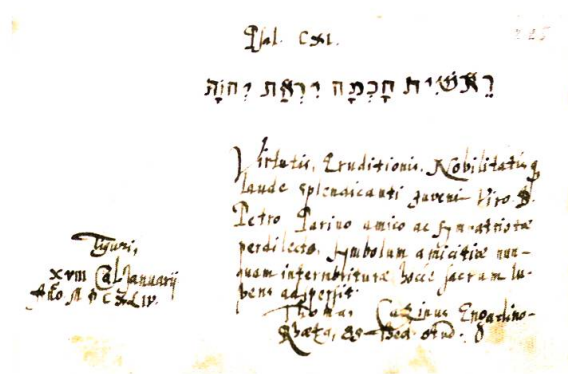 Psal. CXI.
רֵאשִׁית חָכְמָה יִרְאַת יְהוָה
Virtutis, Eruditionis, Nobilitatisq
laude splendicanti Juveni Viro D.
Petro Parino amico ac sympatriotæ
perdilecto, symbolum amicitiæ nun-
quam intermorituræ hocce sacrum lu-
bens adspersit
Thomas Engadino-
Rhæta, SS stud.
Tyguri,
XVIII Cal Januarij
Año